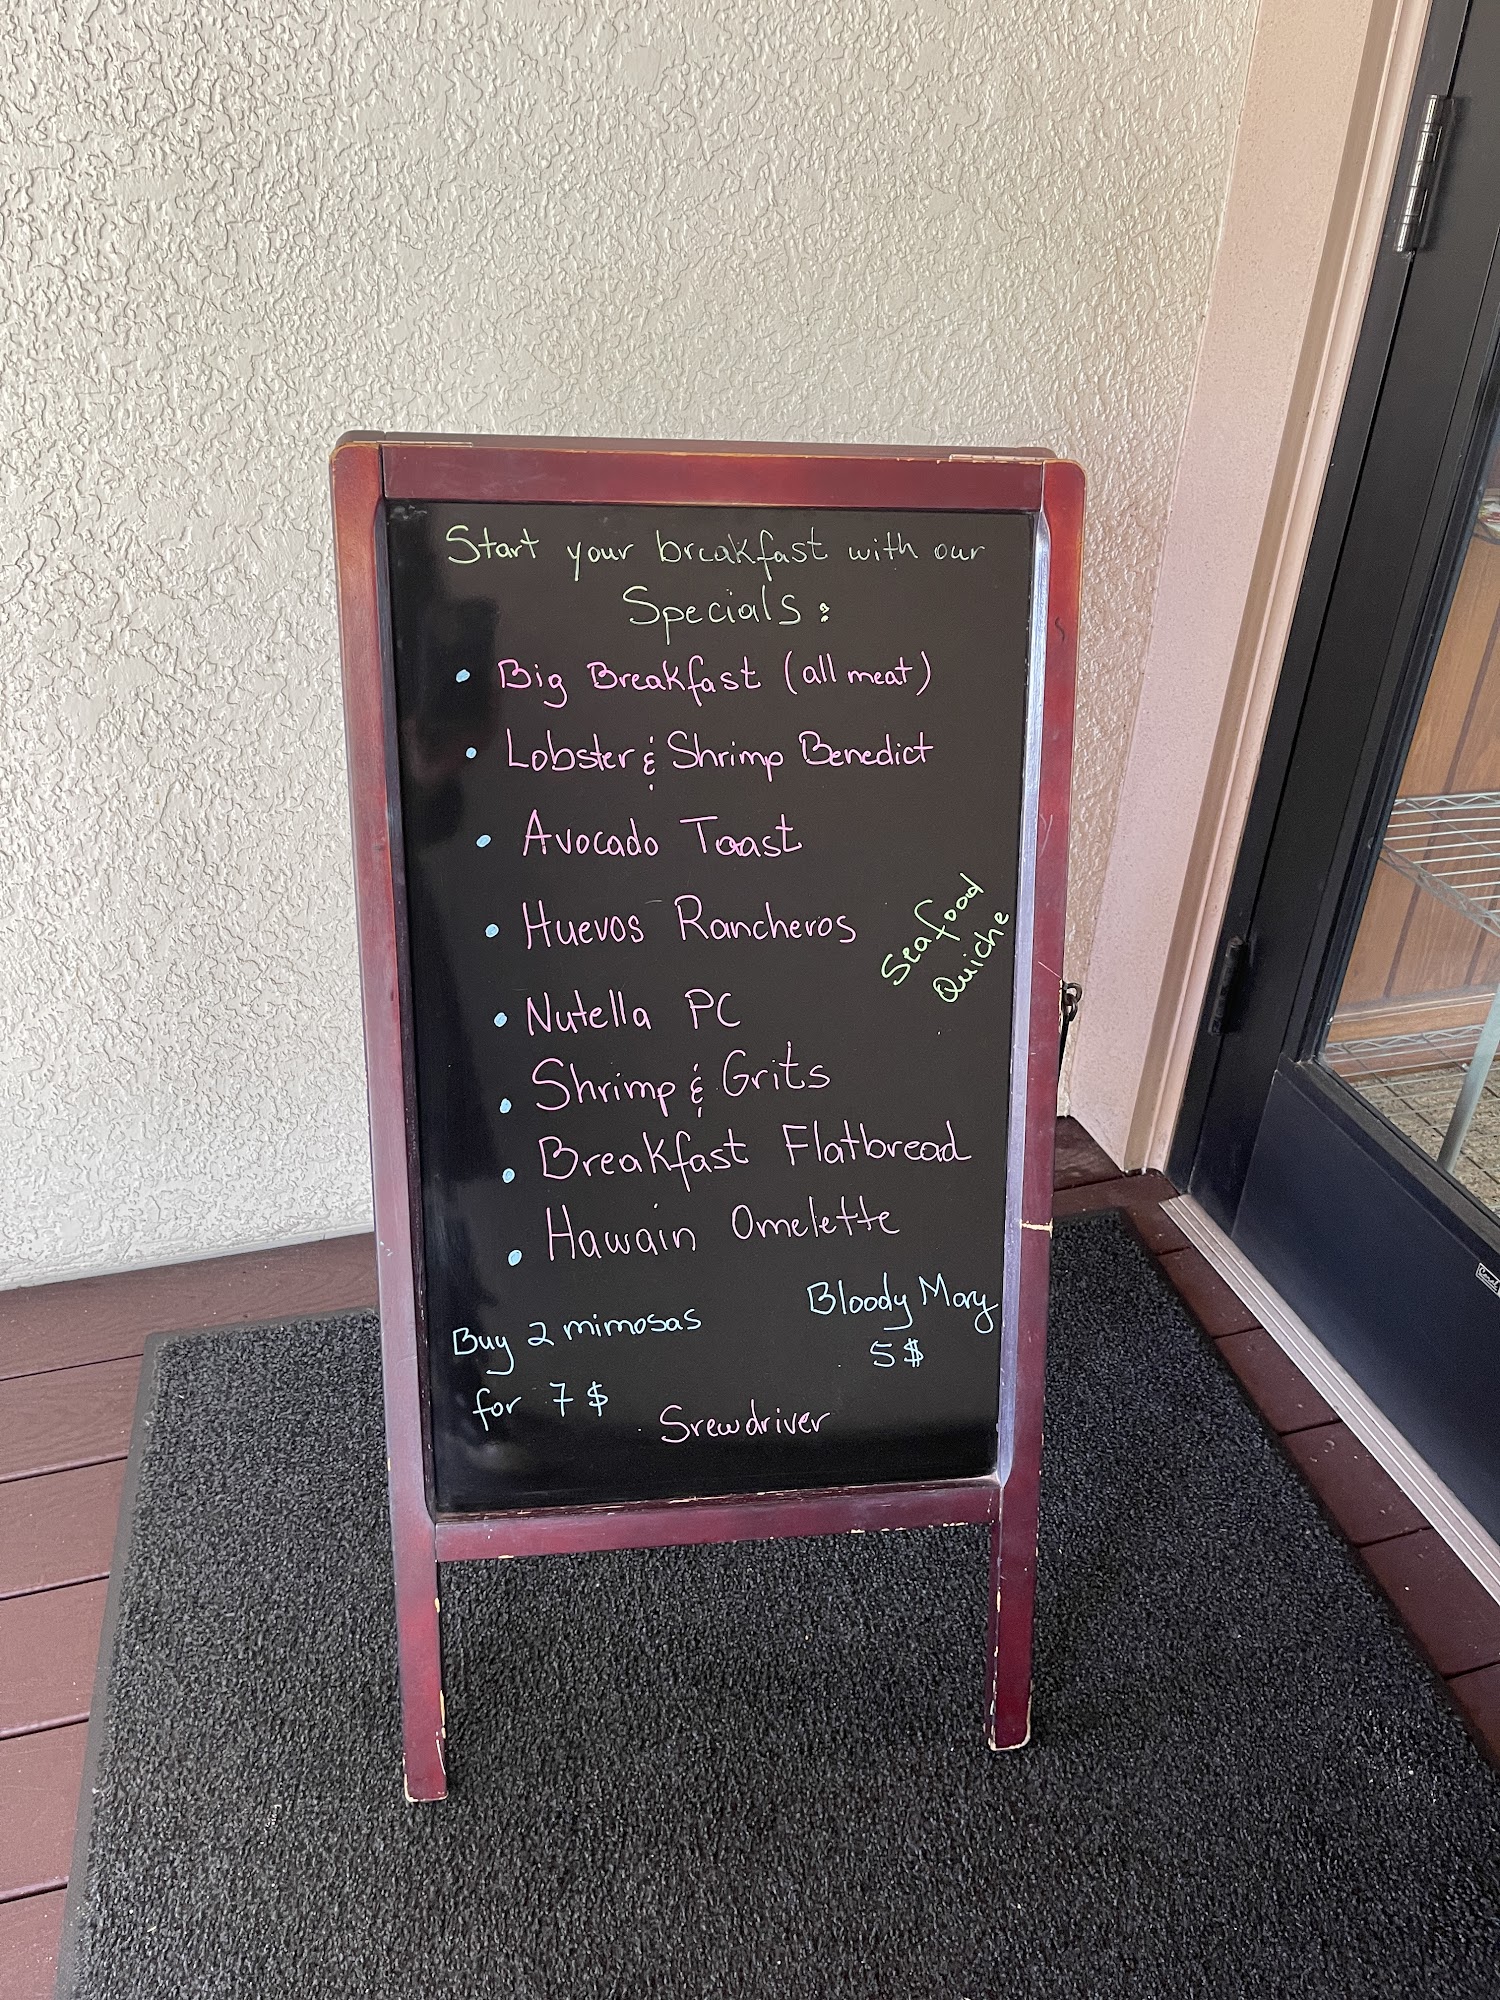 Start your breakfast with our
Specials:
• Big Breakfast (all meat)
• Lobster & Shrimp Benedict
• Avocado Toast
• Huevos Rancheros
Seafood
Quiche
• Nutella PC
• Shrimp & Grits
• Breakfast Flatbread
• Hawain Omelette
Buy 2 mimosas
for 7 $
Bloody Mary
5 $
Srewdriver